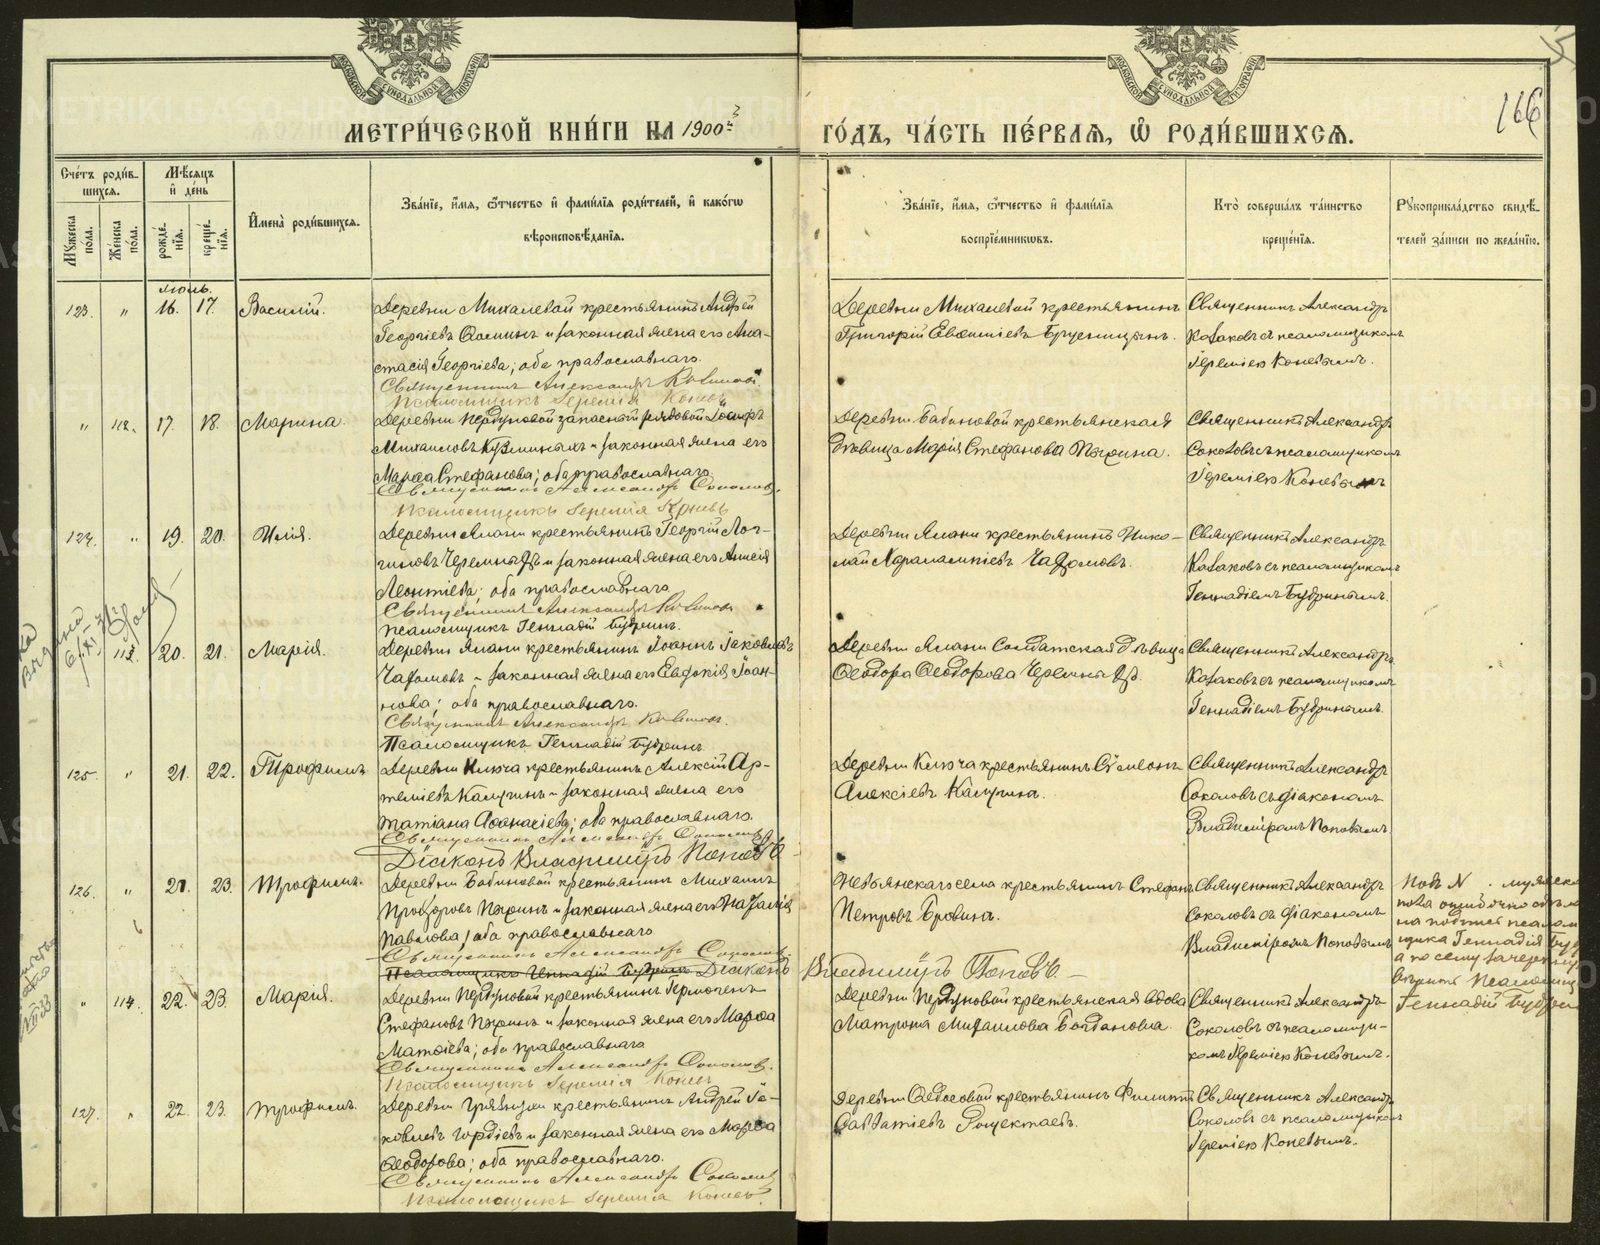 МЕТРИ́ЧЕСКОЙ КНИ́ГИ НА 1900й ГО́ДЪ, ЧА́СТЬ ПЕ́РВАѦ, Ѡ҆ РОДИ́ВШИХСѦ.
166
Сче́тъ роди́в-
шихсѧ.
Мꙋ́жеска по́ла.
Же́нска по́ла.
Мѣ́сѧцъ
и҆ де́нь
рожде́нїѧ.
креще́нїѧ.
И҆мена̀ роди́вшихсѧ.
Зва́нїе, и҆́мѧ, ѻ҆́тчество и҆ фами́лїѧ роди́телей, и҆ како́гѡ
вѣроисповѣ́данїѧ.
Зва́нїе, и҆́мѧ, ѻ҆́тчество и҆ фами́лїѧ
воспрїе́мникѡвъ.
Кто̀ соверша́лъ та́инство
креще́нїѧ.
Рꙋкоприкла́дство свидѣ́-
телей за́писи по жела́нїю.
Іюль.
123. " 16. 17. Василій.
Деревни Михалевой крестьянинъ Андрей
Георгіевъ Ѳоминъ и законная жена его Ана-
стасія Георгіева; оба православнаго.
Священникъ Александръ Казаковъ.
Псаломщикъ Іеремія Коневъ
Деревни Михалевой крестьянинъ
Григорій Евѳиміевъ Брусницынъ.
Священникъ Александръ
Казаковъ съ псаломщикомъ
Іереміею Коневымъ.
" 112. 17. 18. Марина.
Деревни запасной рядовой Іосифъ
Михаиловъ и законная жена его
Марѳа Стефанова; оба православнаго.
Священникъ Александръ Соколовъ.
Псаломщикъ Іеремія Коневъ
Деревни Бабиновой крестьянская
дѣвица Марія Стефанова Пахрина.
Священникъ Александръ
Соколовъ съ псаломщикомъ
Іереміею Коневымъ
124. " 19. 20. Илія.
Деревни Ялани крестьянинъ Георгій Лог-
гиновъ и законная жена его Анисія
Леонтіева; оба православнаго
Священникъ Александръ Казаковъ
Псаломщикъ Геннадій Будринъ.
Деревни Ялани крестьянинъ Нико-
лай Харалампіевъ Чадомовъ.
Священникъ Александръ
Казаковъ съ псаломщикомъ
Геннадіемъ Будринымъ.
" 113. 20. 21. Марія.
Деревни Ялани крестьянинъ Іоаннъ Іаковлевъ
Чадомовъ и законная жена его Евдокія Іоан-
нова; оба православнаго.
Священникъ Александръ Казаковъ.
Псаломщикъ Геннадій Будринъ
Деревни Ялани Солдатская дѣвица
Ѳеодора Ѳеодорова
Священникъ Александръ
Казаковъ съ псаломщикомъ
Геннадіемъ Будринымъ.
125. " 21. 22. Трофимъ
Деревни Ключа крестьянинъ Алексій Ар-
теміевъ Калугинъ и законная жена его
Татіана Аѳанасіева; оба православнаго.
Священникъ Александръ Соколовъ
Діаконъ Владиміръ Поповъ
Деревни Ключа крестьянинъ Сѵмеонъ
Алексіевъ Калугинъ.
Священникъ Александръ
Соколовъ съ діакономъ
Владиміромъ Поповымъ.
126. " 21. 23. Трофимъ.
Деревни Бабиновой крестьянинъ Михаилъ
Прохоровъ Пахринъ и законная жена его Наталія
Павлова; оба православнаго
Священникъ Александръ Соколовъ.
Псаломщикъ Геннадій Будринъ Діаконъ Владиміръ Поповъ.
Невьянскаго села крестьянинъ Стефанъ
Петровъ Бровинъ.
Священникъ Александръ
Соколовъ съ діакономъ
Владиміромъ Поповымъ
Подъ №
ошибочно
на подпись псалом-
щика Геннадія Буд
а по сему зачеркну
Псаломщ
Геннадій Будри
" 114. 22. 23. Марія.
Деревни крестьянинъ Гермогенъ
Стефановъ Пахринъ и законная жена его Марѳа
Матѳіева; оба православнаго
Священникъ Александръ Соколовъ.
Псаломщикъ Іеремія Коневъ
Деревни крестьянская вдова
Матрона Михаилова Богданова.
Священникъ Александръ
Соколовъ съ псаломщи-
комъ Іереміею Коневымъ.
127. " 22. 23. Трофимъ.
Деревни Грязнухи крестьянинъ Андрей Іа-
ковлевъ Гордіевъ и законная жена его Марѳа
Ѳеодорова; оба православнаго.
Священникъ Александръ Соколовъ
Псаломщикъ Іеремія Коневъ.
Деревни Ѳедосовой крестьянинъ Филиппъ
Савватіевъ Рощектаевъ.
Священникъ Александръ
Соколовъ съ псаломщикомъ
Іереміею Коневымъ.